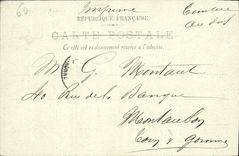 Imprimé
RÉPUBLIQUE FRANÇAISE
CARTE POSTALE
Ce côté est exclusivement réservé à l'adresse.
Mr G. Montaut
40 Rue de la Banque
Montauban
Tarn & Garonne